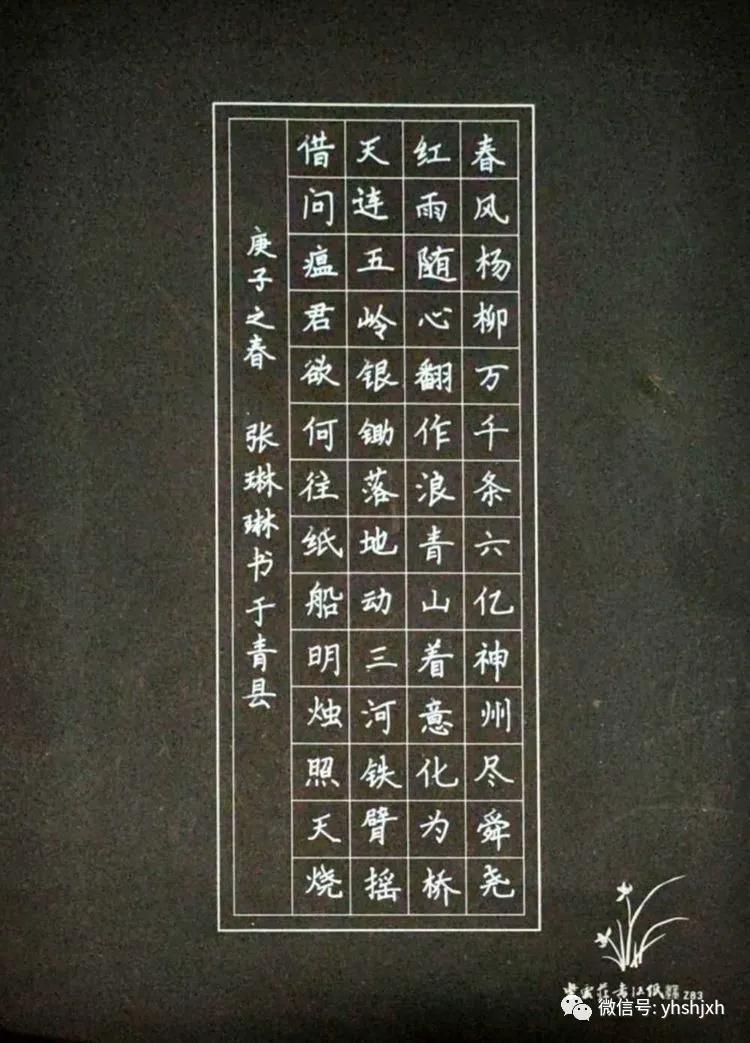 春风杨柳万千条六亿神州尽舜尧
红雨随心翻作浪青山着意化为桥
天连五岭银锄落地动三河铁臂摇
借问瘟君欲何往纸船明烛照天烧
庚子之春 张琳琳书于青县
Z83
微信号: yhshjxh